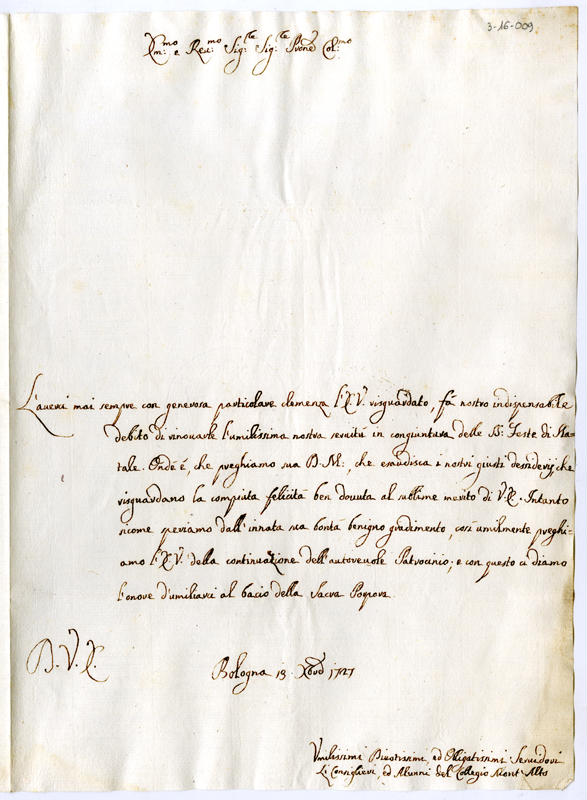 3-16-009
Em:mo e Reu:mo Sig:re Sig:re Prone Col:mo
L'auerci mai sempre con generosa particolare clemenza l'E.V. risguardato, fà nostro indispensabile
debito di rinouarle l'umilissima nostra seruitù in congiuntura delle SS: Feste di Na=
tale. Ond'è, che preghiamo sua D.M:, che esaudisca i nostri giusti desiderij, che
risguardano la compiuta felicità ben douuta al sublime merito di V.E. Intanto
sicome speriamo dall'innata sua bontà benigno gradimento, così umilmente preghi=
amo l'E.V. della continuazione dell'autoreuole Patrocinio; e con questo ci diamo
l'onore d'umiliarci al bacio della Sacra Porpora.
D.V.E.
Bologna 13 Xbre 1727
Vmilissimi Diuotissimi, ed Obligatissimi Seruidori
Li Consiglieri, ed Alunni del Collegio Mont'Alto